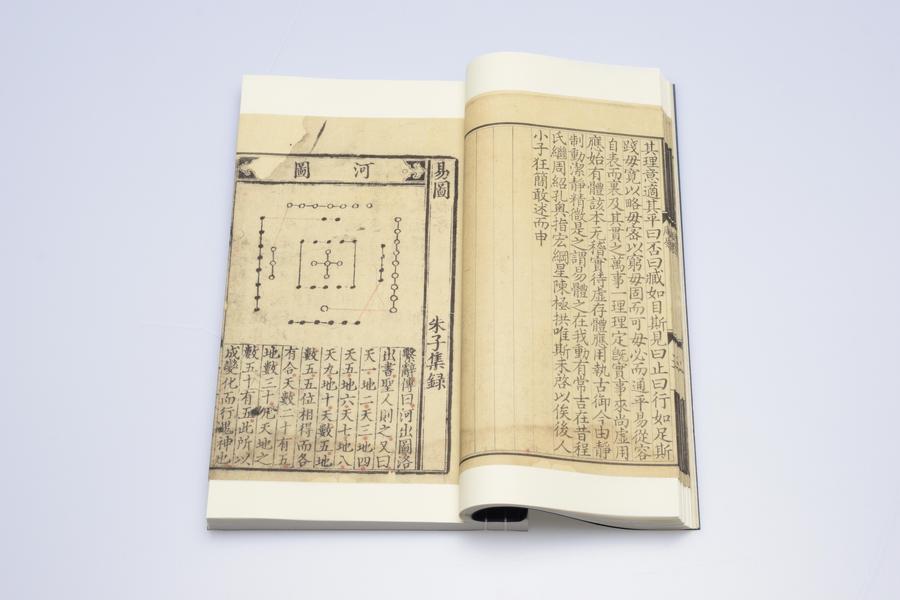 其理意適其平曰否曰臧如目斯見曰止曰行如足斯
踐毋寛以略毋密以窮毋固而可毋必而通平易從容
自表而裏及其貫之萬事一理理定旣實事來尚虛用
應始有體該本无稽實待虛存體應用執古御今由靜
制動潔靜精微是之謂易體之在我動有常吉在昔程
氏繼周紹孔奧指宏綱星陳極拱唯斯未啓以俟後人
小子狂簡敢述而申
易圖
朱子集録
河圖
繫辭傳曰河出圖洛
出書聖人則之又曰
天一地二天三地四
天五地六天七地八
天九地十天數五地
數五五位相得而各
有合天數二十有五
地數三十凡天地之
數五十有五此所以
成變化而行鬼神也